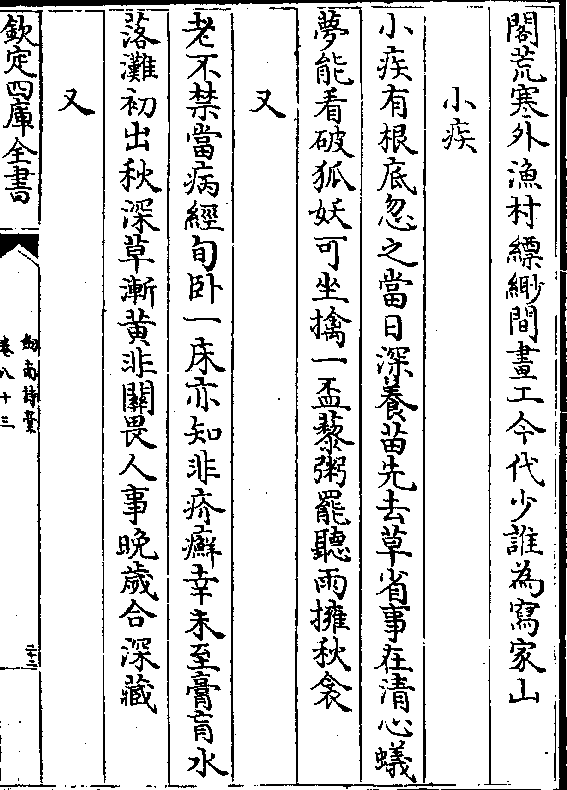 閣荒寒外漁村縹緲間畫工今代少誰為寫家山
小疾
小疾有根底忽之當日深養苗先去草省事在清心蟻
夢能看破狐妖可坐擒一盃藜粥罷聽雨擁秋衾
又
老不禁當病經旬卧一床亦知非疥癬幸未至膏肓水
落灘初出秋深草漸黄非關畏人事晚歲合深藏
又
欽定四庫全書
劍南詩藁
卷八十三